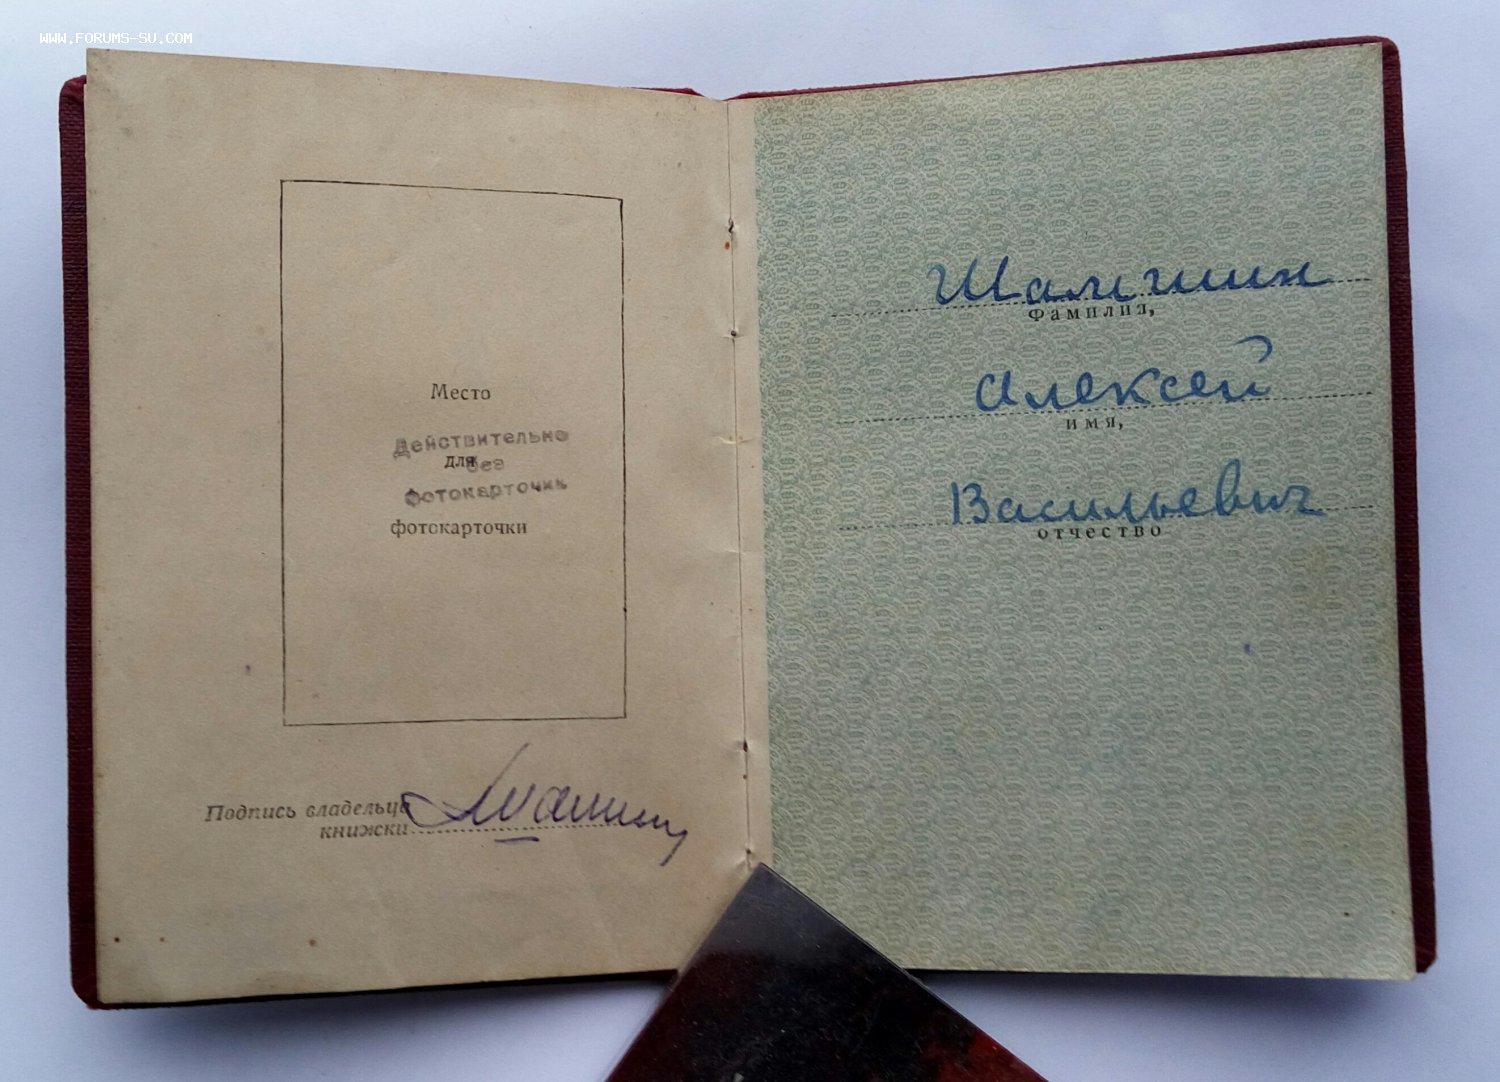 WWW.FORUMS-SU.COM
Место
Действительно
для
без
фотокарточки
фотокарточки
Подпись владельца
книжки
Шамшин
фамилия,
Алексей
имя,
Васильевич
отчество